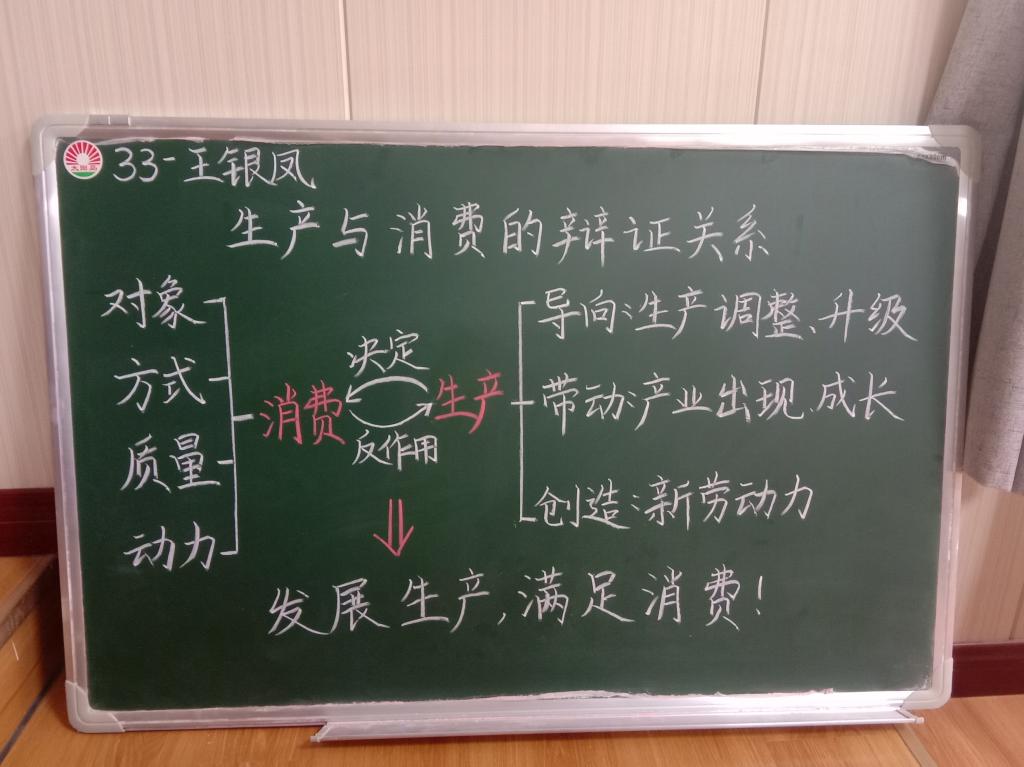 33-王银凤
生产与消费的辩证关系
对象
方式
质量
动力
消费
决定
反作用
生产
导向:生产调整、升级
带动:产业出现、成长
创造:新劳动力
发展生产,满足消费!
太阳岛